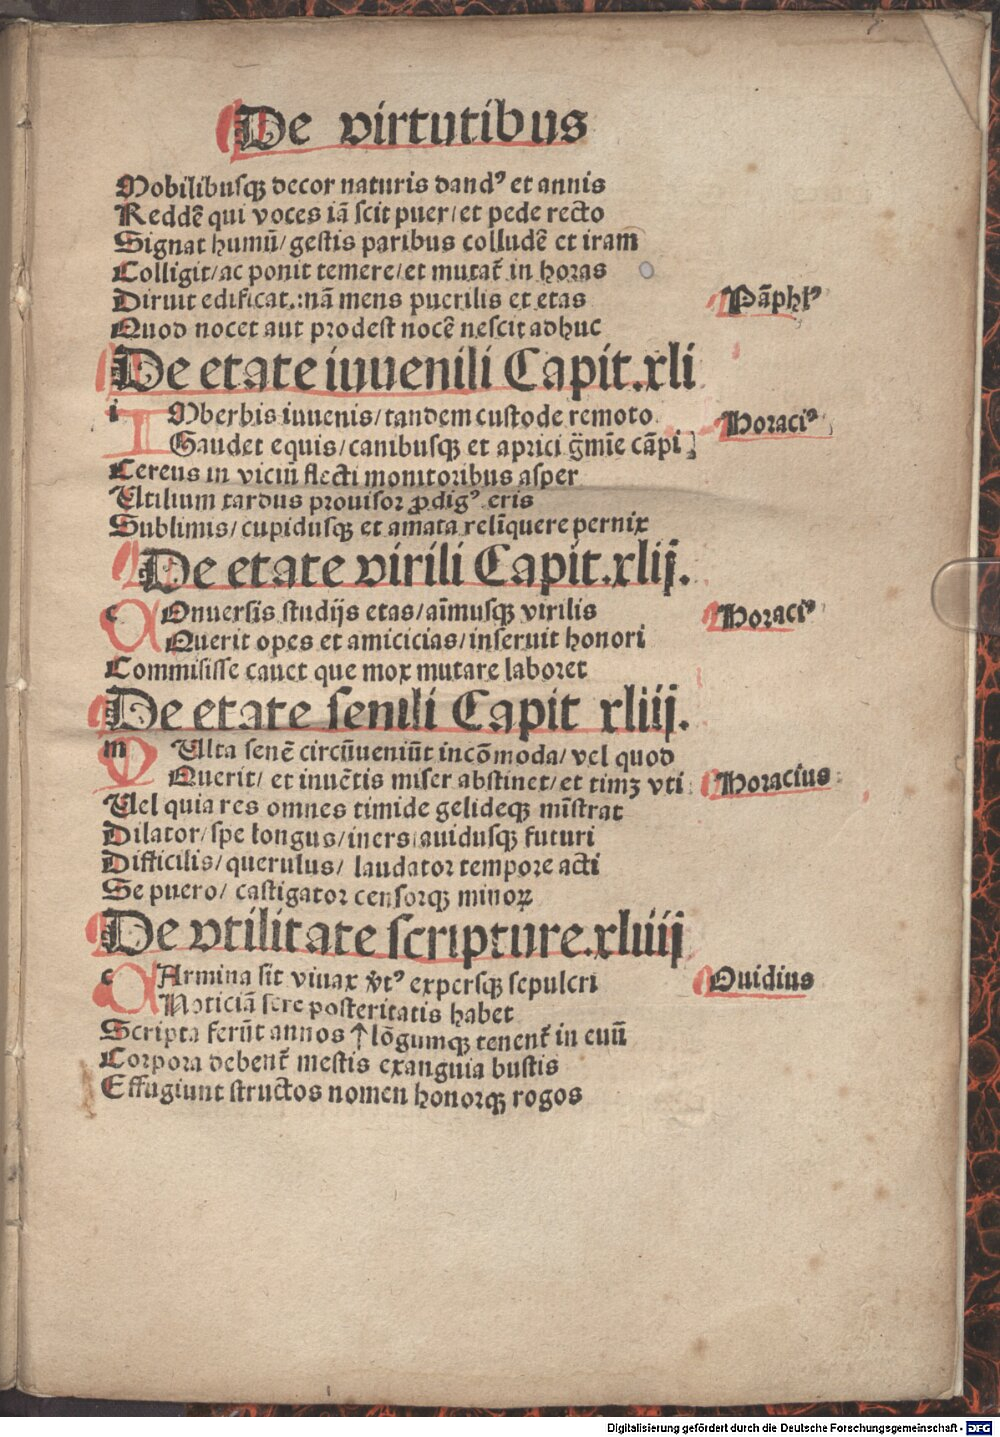 De virtutibus
Mobilibusqꝫ decor naturis dandꝰ et annis
Reddē qui voces iā scit puer/et pede recto
Signat humū/gestis paribus colludē et iram
Colligit/ac ponit temere/et mutat̄ in horas
Diruit edificat.:nā mens puerilis et etas
Pāphlꝰ
Quod nocet aut prodest nocē nescit adhuc
De etate iuuenili Capit.xli
i Mberbis iuuenis/tandem custode remoto
Horaciꝰ
Gaudet equis/canibusqꝫ et aprici g̈mīe cāpi
Cereus in viciū flecti monitoribus asper
Utilium tardus prouisor ꝓdigꝰ eris
Sublimis/cupidusqꝫ et amata relīquere pernix
De etate virili Capit.xlij.
c Onuersis studijs etas/aīmusqꝫ virilis
Horaciꝰ
Querit opes et amicicias/inseruit honori
Commisisse cauet que mox mutare laboret
De etate senili Capit xliij.
m Ulta senē circūueniūt incōmoda/vel quod
Querit/et inuētis miser abstinet/et timꝫ vti
Horacius
Uel quia res omnes timide gelideqꝫ mīstrat
Dilator/spe longus/iners/auidusqꝫ futuri
Difficilis/querulus/ laudator tempore acti
Se puero/ castigator censorqꝫ minoꝝ
De vtilitate scripture.xliiij
c Armina sit viuax v̇tꝰ expersqꝫ sepulcri
Ouidius
Noticiā sere posteritatis habet
Scripta ferūt annos ↑ lōgumqꝫ tenent̄ in euū
Corpora debent̄ mestis exanguia bustis
Effugiunt structos nomen honorqꝫ rogos
Digitalisierung gefördert durch die Deutsche Forschungsgemeinschaft - DFG